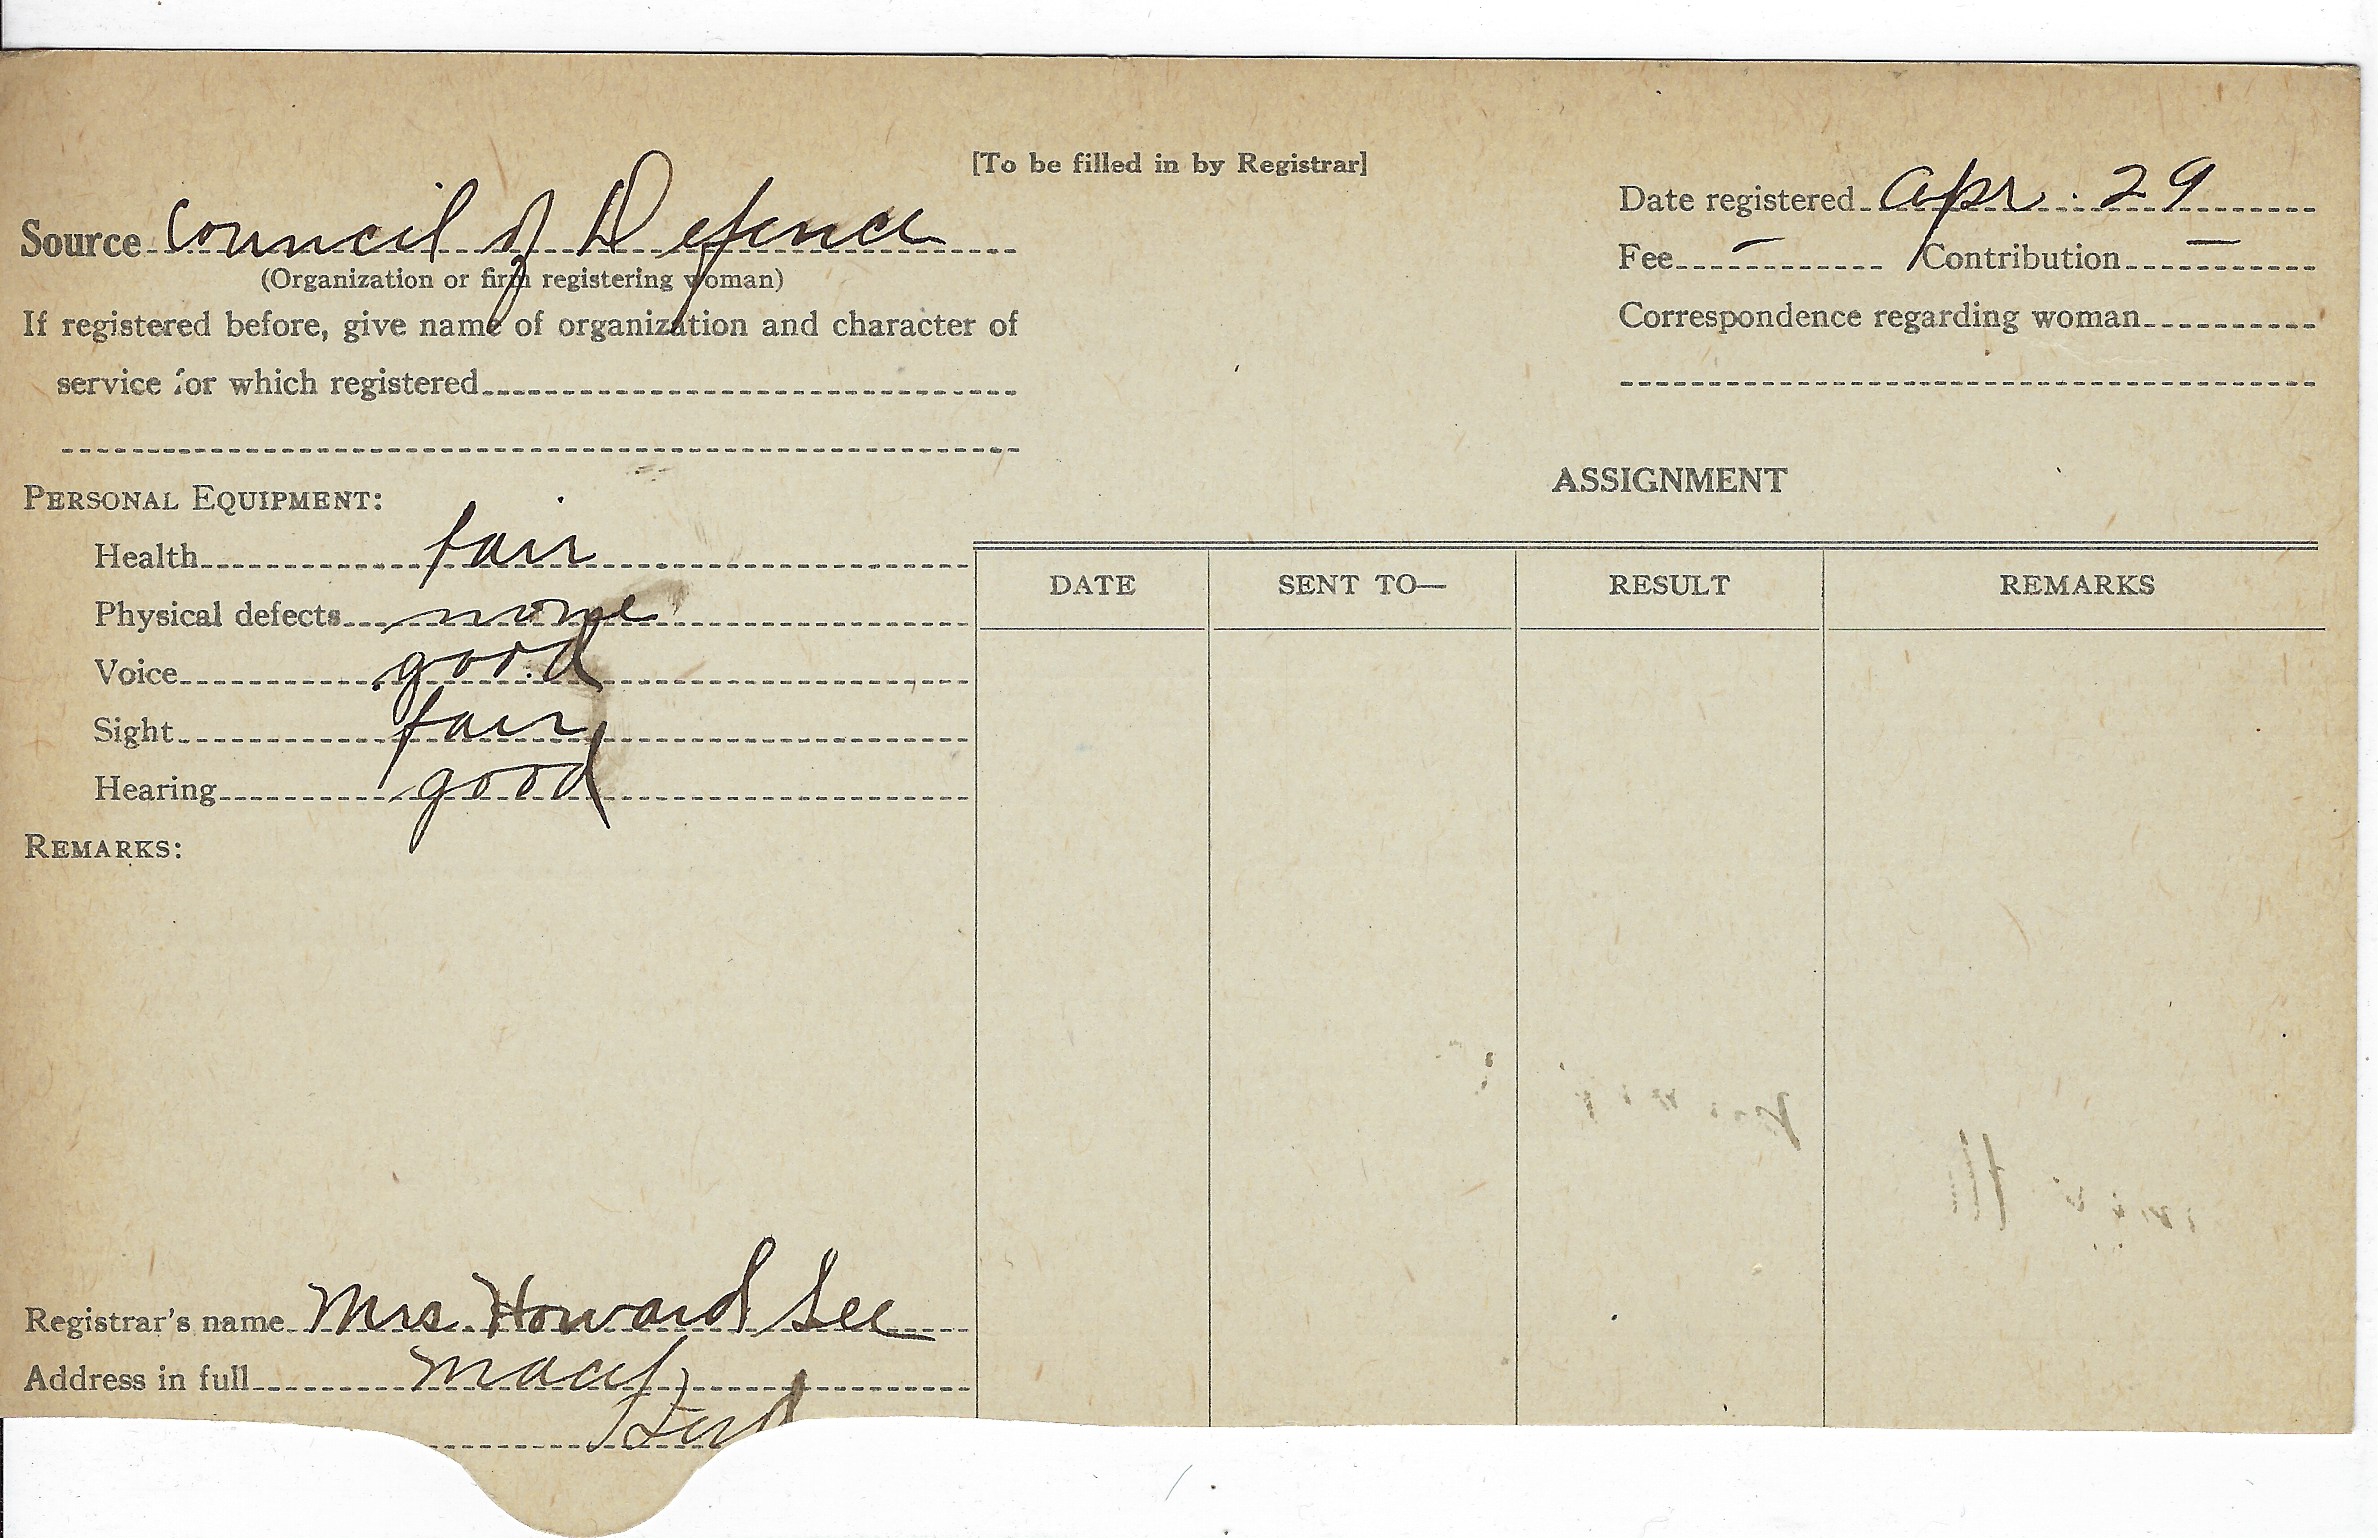 [To be filled in by Registrar]
Source Council of Defence
(Organization or firm registering woman)
If registered before, give name of organization and character of
service for which registered
Date registered Apr. 29
Fee — Contribution —
Correspondence regarding woman
PERSONAL EQUIPMENT:
Health fair
Physical defects none
Voice good
Sight fair
Hearing good
REMARKS:
ASSIGNMENT
DATE SENT TO— RESULT REMARKS
Registrar's name Mrs Howard Lee
Address in full